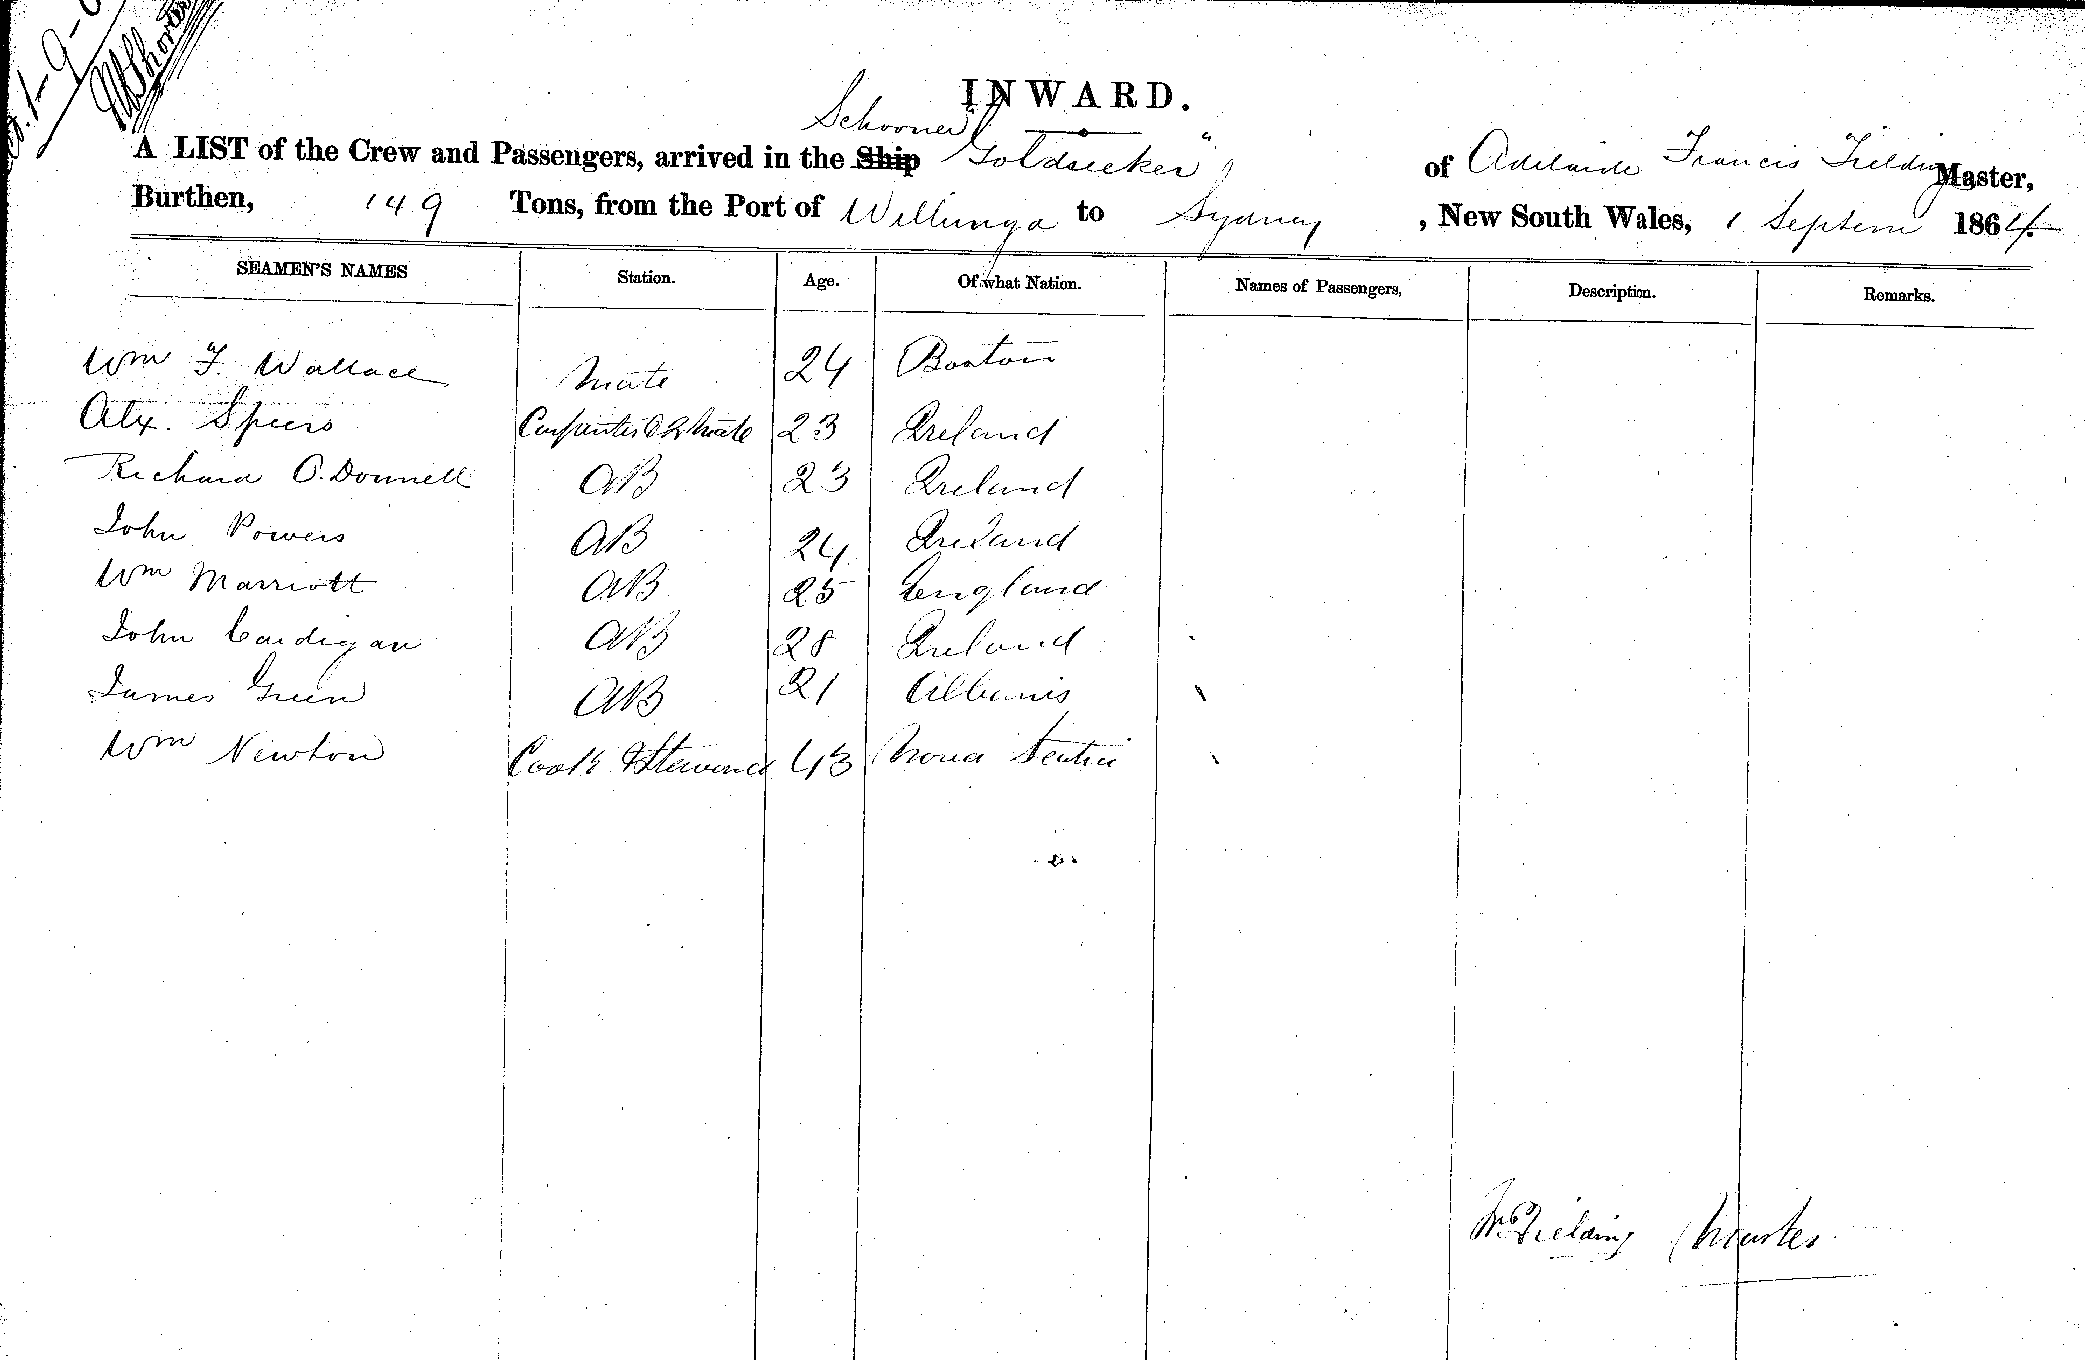 1-9-6
INWARD.
Schooner
A LIST of the Crew and Passengers, arrived in the Ship "Goldseeker" of Adelaide Francis Fielding Master,
Burthen, 149 Tons, from the Port of Willunga to Sydney, New South Wales, 1 Septem 1864.
SEAMEN'S NAMES Station. Age. Of what Nation. Names of Passengers, Description. Remarks.
Wm F. Wallace Mate 24 Boston
Alx. Speers Carpenter & 2 Mate 23 Ireland
Richard O.Donnell AB 23 Ireland
John Powers AB 24 Ireland
Wm Marriott AB 25 England
John Cardigan AB 28 Ireland
James Green AB 21 Albanis
Wm Newton Cook & Steward 43 Nova Scotia
Frs Fielding Master